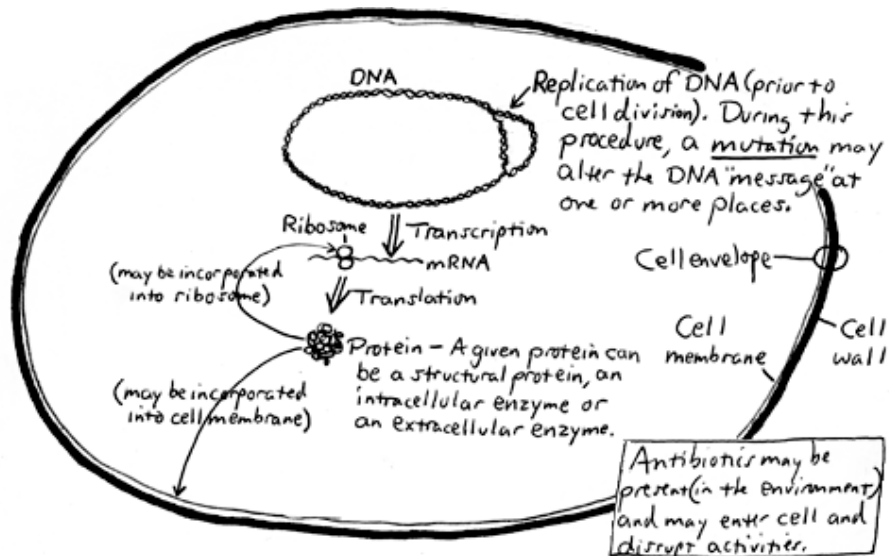 DNA
Replication of DNA (prior to
cell division). During this
procedure, a mutation may
alter the DNA "message" at
one or more places.
Ribosome
Transcription
mRNA
(may be incorporated
into ribosome)
Translation
Cell envelope
Cell
membrane
Cell
wall
Protein – A given protein can
be a structural protein, an
intracellular enzyme or
an extracellular enzyme.
(may be incorporated
into cell membrane)
Antibiotics may be
present (in the environment)
and may enter cell and
disrupt activities.